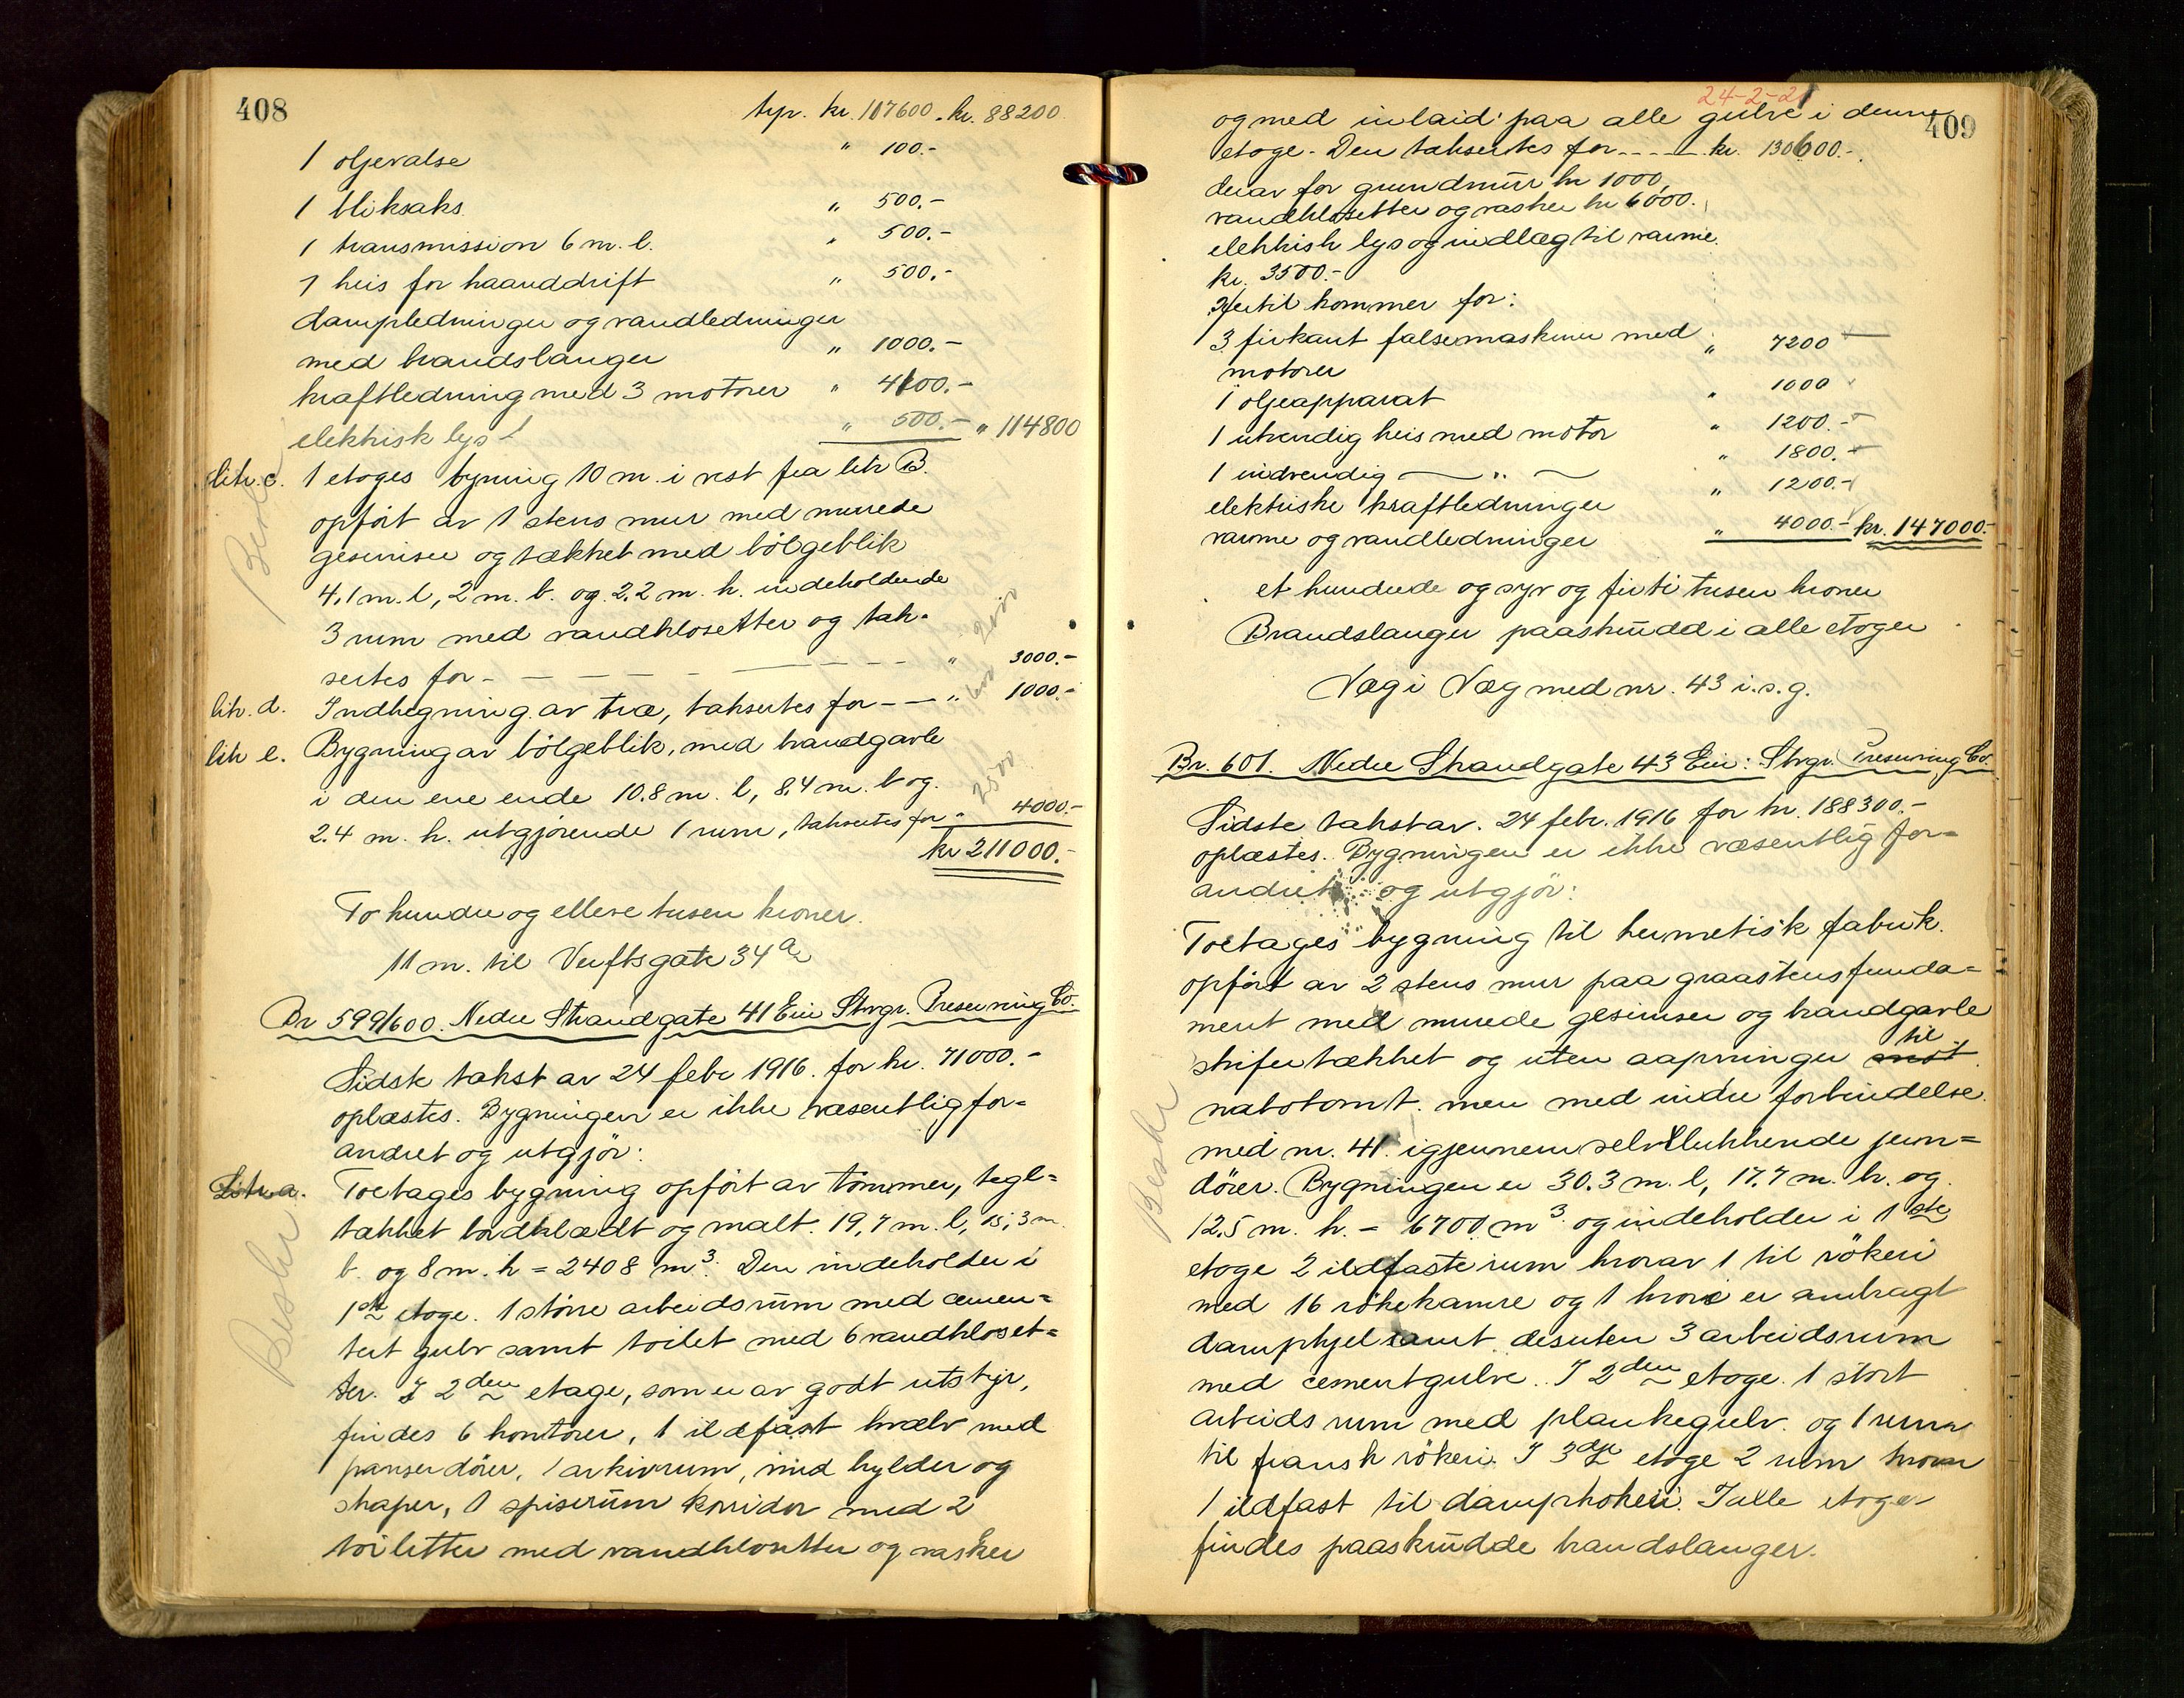 408
typ. kr. 107600.- kr. 88200.
1 oljevalse " 100.-
1 bliksaks " 500.-
1 transmission 6 m. l. " 500.-
1 heis for haanddrift " 500.-
dampledninger og vandledninger
med brandslanger " 1000.-
kraftledning med 3 motorer " 4100.-
elektrisk lys " 500.- " 114800
litr. c. 1 etages bygning 10 m. i vest fra litr B.
opført av 1 stens mur med murede
gesimser og tækket med bölgeblik
4,1 m. l, 2 m. b. og 2,2 m. h. indeholdende
3 rum med vandklosetter og tak-
sertes for - - - - - " 3000.- 2000
litr. d. Indhegning av træ, taksertes for - - " 1000.- 600
litr e. Bygning av bölgeblik, med brandgavle
i den ene ende 10.8 m. l, 8,4 m. b og
2.4 m. h. utgjörende 1 rum, taksertes for " 4000.- 2500
kr 211000.-
To hundre og elleve tusen kroner.
11 m. til Verftsgate 34a
Br 599/600. Nedre Strandgate 41 Eier Stvgr. Preserving Co.
Sidste takst av 24 febr 1916. for kr. 71000.-
oplæstes. Bygningen er ikke væsentlig for-
andret og utgjör:
Litr a. Toetages bygning opført av tömmer, tegl-
tækket bordklædt og malt. 19,7 m. l, 15,3 m.
b. og 8 m. h = 2408 m³. Den indeholder i
1ste etage. 1 större arbeidsrum med cemen-
tert gulv samt toilet med 6 vandkloset-
ter. I 2den etage, som er av godt utstyr,
findes 6 kontorer, 1 ildfast hvælv med
panserdörer, 1 arkivrum, med hylder og
skaper, 1 spiserum korridor med 2
toiletter med vandklosetter og vasker
Beskr
Beskr
24-2-21
409
og med inlaid paa alle gulve i denne
etage. Den taksertes for - - - - kr. 130600.-
derav for grundmur kr 1000,
vandklosetter og vasker kr 6000.
elektrisk lys og indlæg til varme
kr. 3500.-
Hertil kommer for:
3 firkant falsemaskiner med
motorer " 7200
1 oljeapparat " 1000
1 utvendig heis med motor " 1200.-
1 indvendig — " — " 1800.-
elektriske kraftledninger " 1200.-
varme og vandledninger " 4000.- kr. 147000.-
et hundrede og syv og firti tusen kroner
Brandslanger paaskrudd i alle etager
Væg i Væg med nr. 43 i. s. g.
Br. 601. Nedre Strandgate 43 Eier: Stvgr. Preserving Co.
Sidste takst av. 24 febr. 1916 for kr. 188300.-
oplæstes. Bygningen er ikke væsentlig for-
andret og utgjör:
Toetages bygning til hermetisk fabrik.
opført av 2 stens mur paa graastensfunda-
ment med murede gesimser og brandgavle
skifertækket og uten aapninger mot til
nabotomt. men med indre forbindelse
med nr. 41. igjennem selvlukkende jern-
dörer. Bygningen er 30.3 m. l, 17,7 m. b. og
12,5 m. h. = 6700 m³ og indeholder i 1ste
etage 2 ildfaste rum hvorav 1 til rökeri
med 16 rökekamre og 1 hvori er anbragt
dampkjel samt. desuten 3 arbeidsrum
med cementgulve. I 2den etage. 1 stort
arbeids rum med plankegulv. og 1 rum
til fransk rökeri. I 3dje etage 2 rum hvorav
1 ildfast til dampkokeri. I alle etager
findes paaskrudde brandslanger.
Beskr